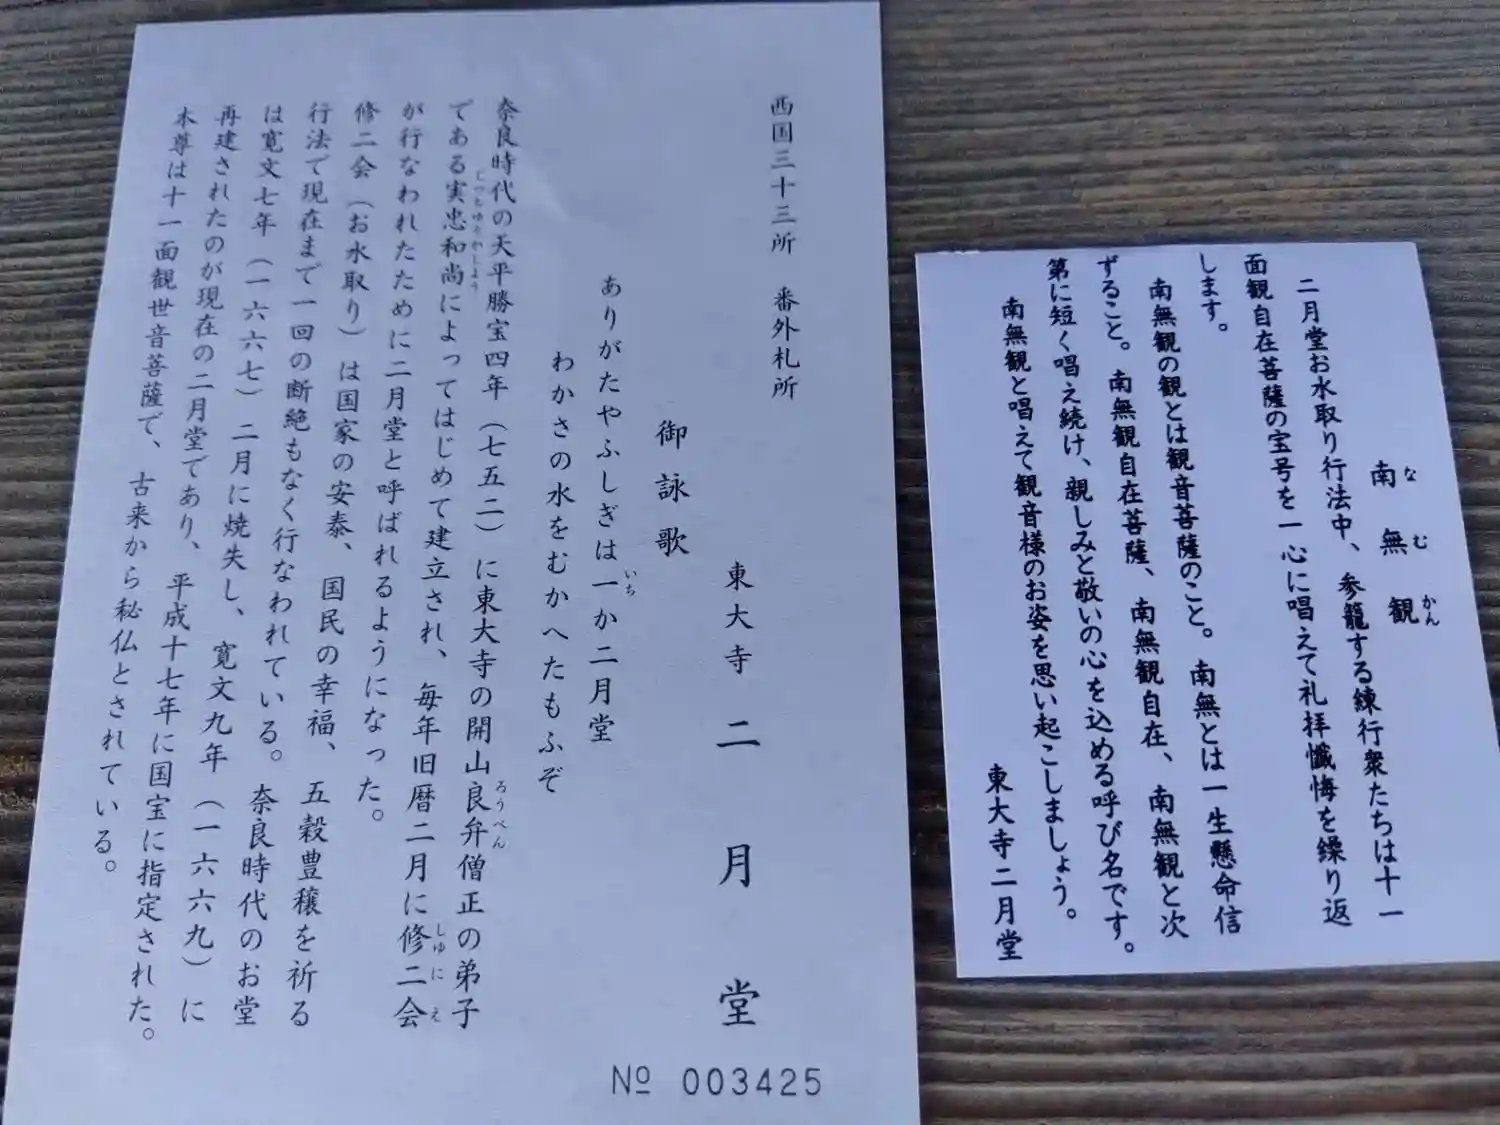 西国三十三所 番外札所
東大寺 二月堂
御詠歌
ありがたやふしぎは一か二月堂
いち
わかさの水をむかへたもふぞ
奈良時代の天平勝宝四年（七五二）に東大寺の開山良弁僧正の弟子
ろうべん
である実忠和尚によってはじめて建立され、毎年旧暦二月に修二会
じっちゅうかしょう
しゅにえ
が行なわれたために二月堂と呼ばれるようになった。
修二会（お水取り）は国家の安泰、国民の幸福、五穀豊穣を祈る
行法で現在まで一回の断絶もなく行なわれている。奈良時代のお堂
は寛文七年（一六六七）二月に焼失し、寛文九年（一六六九）に
再建されたのが現在の二月堂であり、平成十七年に国宝に指定された。
本尊は十一面観世音菩薩で、古来から秘仏とされている。
№ 003425
南無観
なむかん
二月堂お水取り行法中、参籠する練行衆たちは十一
面観自在菩薩の宝号を一心に唱えて礼拝懺悔を繰り返
します。
南無観の観とは観音菩薩のこと。南無とは一生懸命信
ずること。南無観自在菩薩、南無観自在、南無観と次
第に短く唱え続け、親しみと敬いの心を込める呼び名です。
南無観と唱えて観音様のお姿を思い起こしましょう。
東大寺二月堂